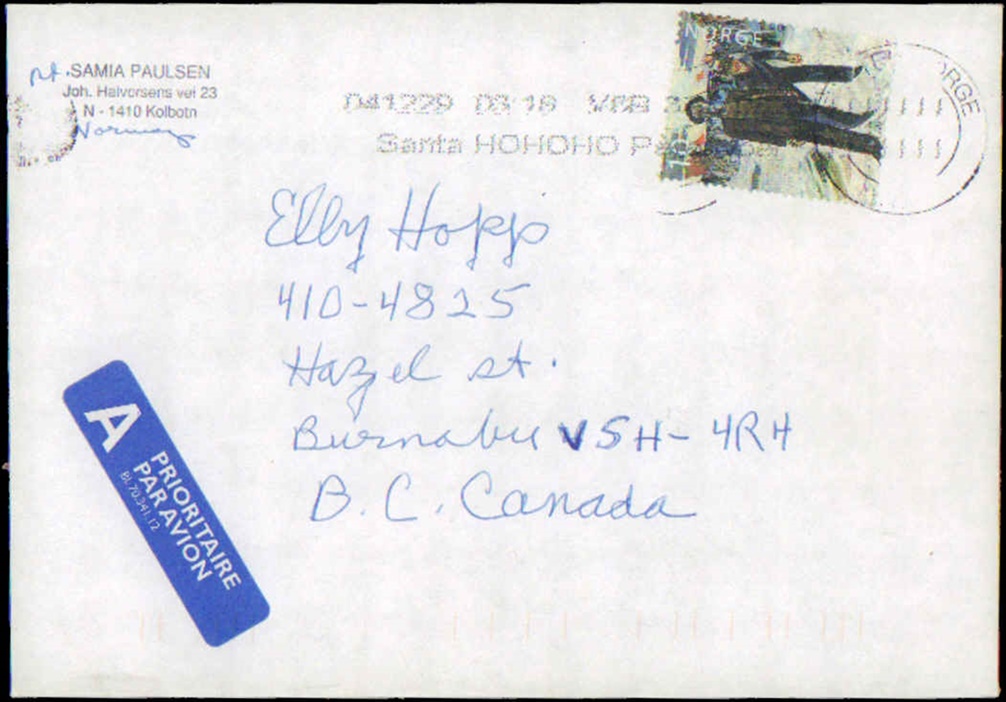 SAMIA PAULSEN
Joh. Halvorsens vei 23
N - 1410 Kolbotn
Norway
041229 03:18 VRB
Santa HOHOHO
NORGE
NORGE
Elly Hopp
410-4825
Hazel st.
Burnabee V5H-4R4
B.C. Canada
A
PRIORITAIRE
PAR AVION
Bl. 70.341.12